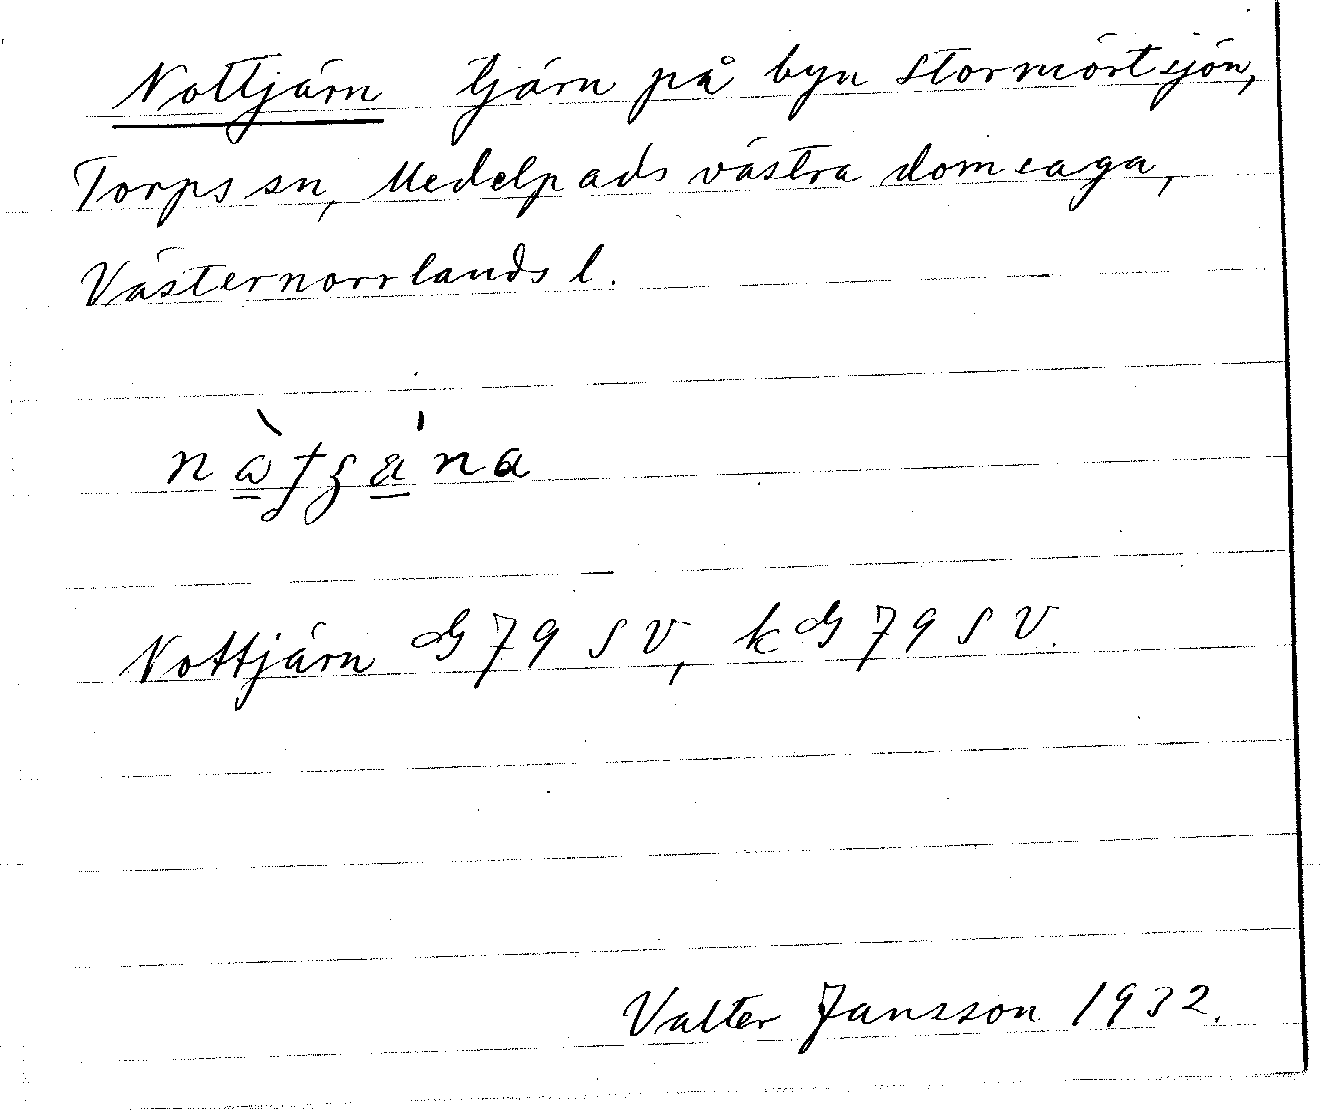 Nottjärn tjärn på byn Stormörtsjön,
Torps sn, Medelpads västra domsaga,
Västernorrlands l.
Nottjärn G 79 SV, kG 79 SV.
Valter Jansson 1932.